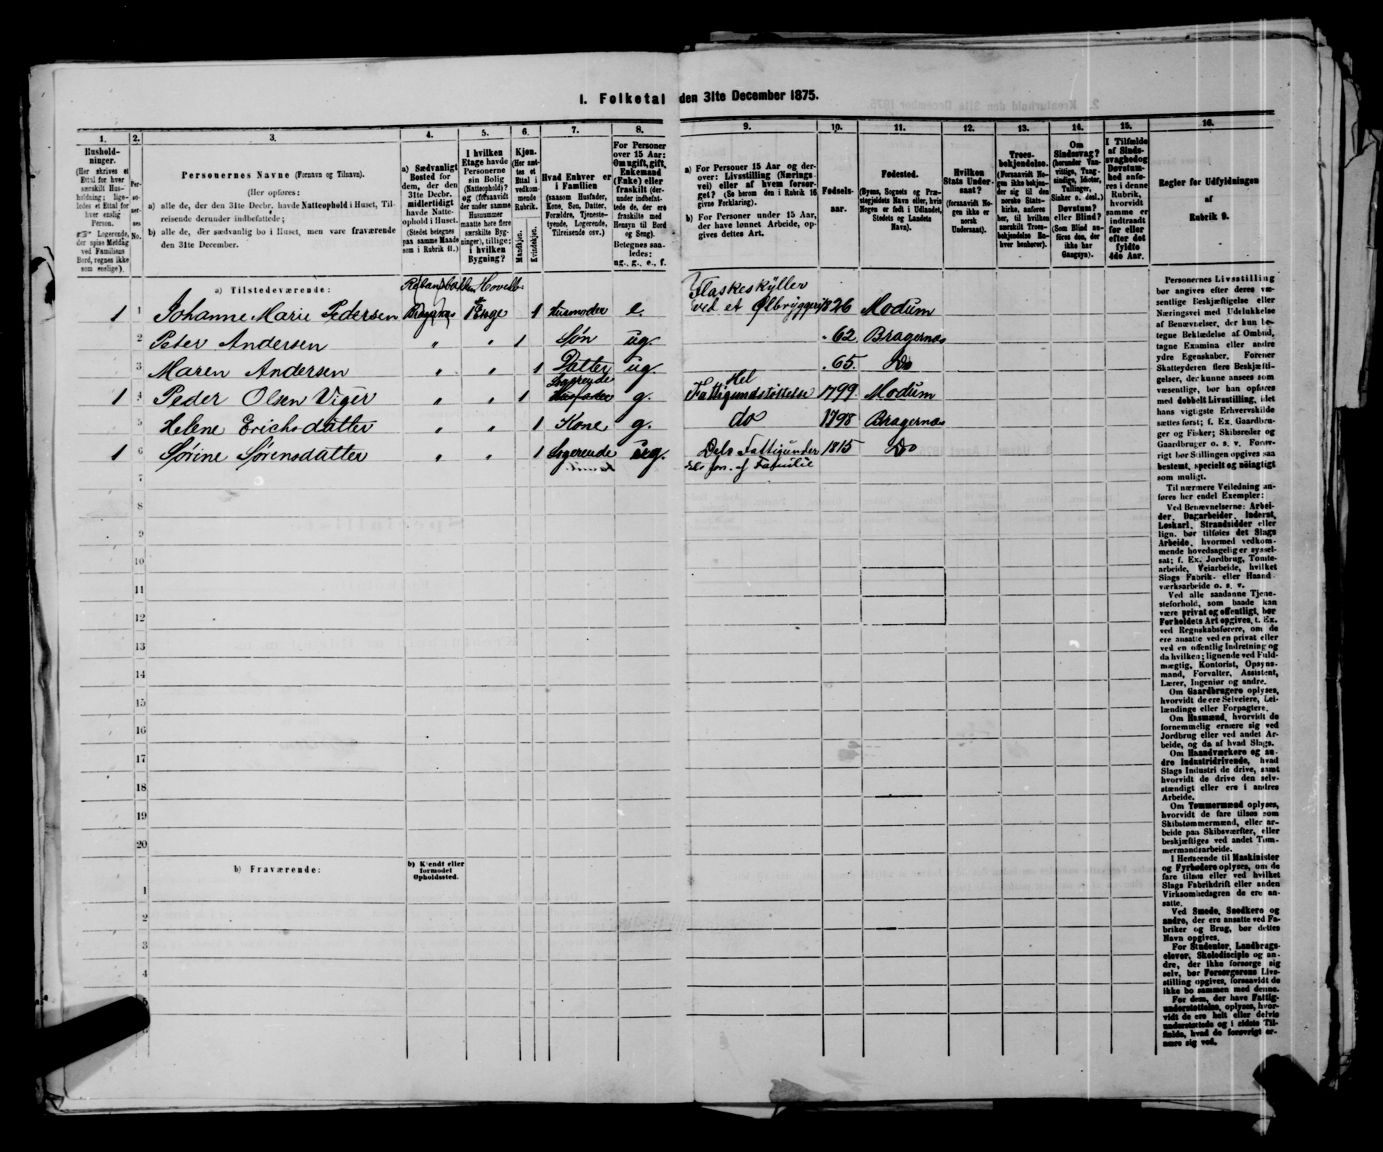 1. Folketal den 31te December 1875.
1. 2. 3. 4. 5. 6. 7. 8. 9. 10. 11. 12. 13. 14. 15. 16.
Hushold-
ninger.
(Her skrives et
Ettal for hver
særskilt Hus-
holdning; lige-
ledes et Ettal for
hver enslig
Person.
Logerende,
der spise Middag
ved Familiens
Bord, regnes ikke
som enslige).
Per-
so-
ner-
nes
No.
Personernes Navne (Fornavn og Tilnavn).
(Her opføres:
a) alle de, der den 31te Decbr. havde Natteophold i Huset, Til-
reisende derunder indbefattede;
b) alle de, der sædvanlig bo i Huset, men vare fraværende
den 31te December.
a) Sædvanligt
Bosted for
dem, der den
31te Decbr.
midlertidigt
havde Natte-
ophold i Huset.
(Stedet betegnes
paa samme Maade
som i Rubrik 11.)
I hvilken
Etage havde
Personerne
sin Bolig
(Natteophold)?
og (forsaavidt
der under samme
Husnummer
maatte høre flere
særskilte Byg-
ninger), tillige:
i hvilken
Bygning?
Kjøn.
(Her sæt-
tes et
Ettal i
vedkom-
mende
Rubrik.
Mandkjøn.
Kvindekjøn.
Hvad Enhver er
i Familien
(saasom Husfader,
Kone, Søn, Datter,
Forældre, Tjeneste-
tyende, Logerende,
Tilreisende osv.)
For Personer
over 15 Aar:
Om ugift, gift,
Enkemand
(Enke) eller
fraskilt (der-
under indbefat-
tede de, der ere
fraskilte med
Hensyn til Bord
og Seng).
Betegnes saa-
ledes:
ug., g., e., f.
a) For Personer 15 Aar og der-
over: Livsstilling (Nærings-
vei) eller af hvem forsør-
get? (Se herom den i Rubrik 16
givne Forklaring).
b) For Personer under 15 Aar,
der have lønnet Arbeide, op-
gives dettes Art.
Fødsels-
aar.
Fødested.
(Byens, Sognets og Præ-
stegjeldets Navn eller, hvis
Nogen er født i Udlandet,
Stedets og Landets
Navn).
Hvilken
Stats Under-
saat?
(forsaavidt No-
gen ikke er
norsk
Undersaat).
Troes-
bekjendelse.
(Forsaavidt No-
gen ikke bekjen-
der sig til den
norske Stats-
kirke, anføres
her, til hvilken
særskilt Troes-
bekjendelse En-
hver henhører).
Om
Sindssvag?
(herunder Van-
vittige, Tung-
sindige, Idioter,
Tullinger,
Sinker o. desl.)
Døvstum?
eller Blind?
(Som Blind an-
føres den, der
ikke har
Gangsyn).
I Tilfælde
af Sinds-
svaghed og
Døvstum-
hed anfø-
res i denne
Rubrik,
hvorvidt
samme er
indtraadt
før eller
efter det
fyldte
4de Aar.
Regler for Udfyldningen
af
Rubrik 9.
a) Tilstedeværende:
1 1 Johanne Marie Pedersen Bragernæs Enge 1 Husmoder e. Flaskeskyller
ved et Ølbryggeri 1826 Modum
2 Peter Andersen " " 1 Søn ug. " 62 Bragernæs
3 Maren Andersen " " 1 Datter ug. " 65 Do
1 4 Peder Olsen Viger " " 1 Logerende Husfader g. Hel
Fattigunderstøttelse 1799 Modum
5 Helene Erichsdatter " " 1 Kone g. do 1798 Bragernæs
1 6 Sørine Sørensdatter " " 1 Logerende ug. Dels Fattigunder 1815 Do
dels for. af Familie
7
8
9
10
11
12
13
14
15
16
17
18
19
20
b) Fraværende:
b) Kjendt eller
formodet
Opholdssted.
1
2
3
4
Personernes Livsstilling
bør angives efter deres væ-
sentlige Beskjæftigelse eller
Næringsvei med Udelukkelse
af Benævnelser, der kun be-
tegne Beklædelse af Ombud,
tagne Examina eller andre
ydre Egenskaber. Forener
Skatteyderen flere Beskjæfti-
gelser, der kunne ansees som
væsentlige, bør han opføres
med dobbelt Livsstilling, idet
hans vigtigste Erhvervskilde
sættes først; f. Ex. Gaardbru-
ger og Fisker; Skibsreder og
Gaardbruger o. s. v. Forøv-
rigt bør Stillingen opgives saa
bestemt, specielt og nøiagtigt
som muligt.
Til nærmere Veiledning an-
føres her endel Exempler:
Ved Benævnelserne: Arbei-
der, Dagarbeider, Inderst,
Løskarl, Strandsidder eller
lign. bør tilføies det Slags
Arbeide, hvormed vedkom-
mende hovedsagelig er syssel-
sat; f. Ex. Jordbrug, Tomte-
arbeide, Veiarbeide, hvilket
Slags Fabrik- eller Haand-
værksarbeide o. s. v.
Ved alle saadanne Tjene-
steforhold, som baade kan
være privat og offentligt, bør
Forholdets Art opgives, t. Ex.
ved Regnskabsførere, om de
ere ansatte ved en privat eller
ved en offentlig Indretning og
da hvilken; lignende ved Fuld-
mægtig, Kontorist, Opsyns-
mand, Forvalter, Assistent,
Lærer, Ingeniør og andre.
Om Gaardbrugere oplyses,
hvorvidt de ere Selveiere, Lei-
lændinge eller Forpagtere.
Om Husmænd, hvorvidt de
fornemmelig ernære sig ved
Jordbrug eller ved andet Ar-
beide, og da af hvad Slags.
Om Haandværkere og an-
dre Industridrivende, hvad
Slags Industri de drive, samt
hvorvidt de drive den selv-
stændigt eller ere i andres
Arbeide.
Om Tømmermænd oplyses,
hvorvidt de fare tilsøs som
Skibstømmermænd, eller ar-
beide paa Skibsværfter, eller
beskjæftiges ved andet Tøm-
mermandsarbeide.
I Henseende til Maskinister
og Fyrbødere oplyses, om de
fare tilsøs eller ved hvilket
Slags Fabrikdrift eller anden
Virksomhedsgren de ere an-
satte.
Ved Smede, Snedkere og
andre, der ere ansatte ved Fa-
briker og Brug, bør dettes
Navn opgives.
For Studenter, Landbrugs-
elever, Skoledisciple og an-
dre, der ikke forsørge sig
selv, bør Forsørgerens Livs-
stilling opgives, forsaavidt de
ikke bo sammen med denne.
For dem, der have Fattig-
understøttelse, oplyses, hvor-
vidt de ere helt eller delvis
understøttede og i sidste Til-
fælde, hvad de forøvrigt er-
nære sig ved.